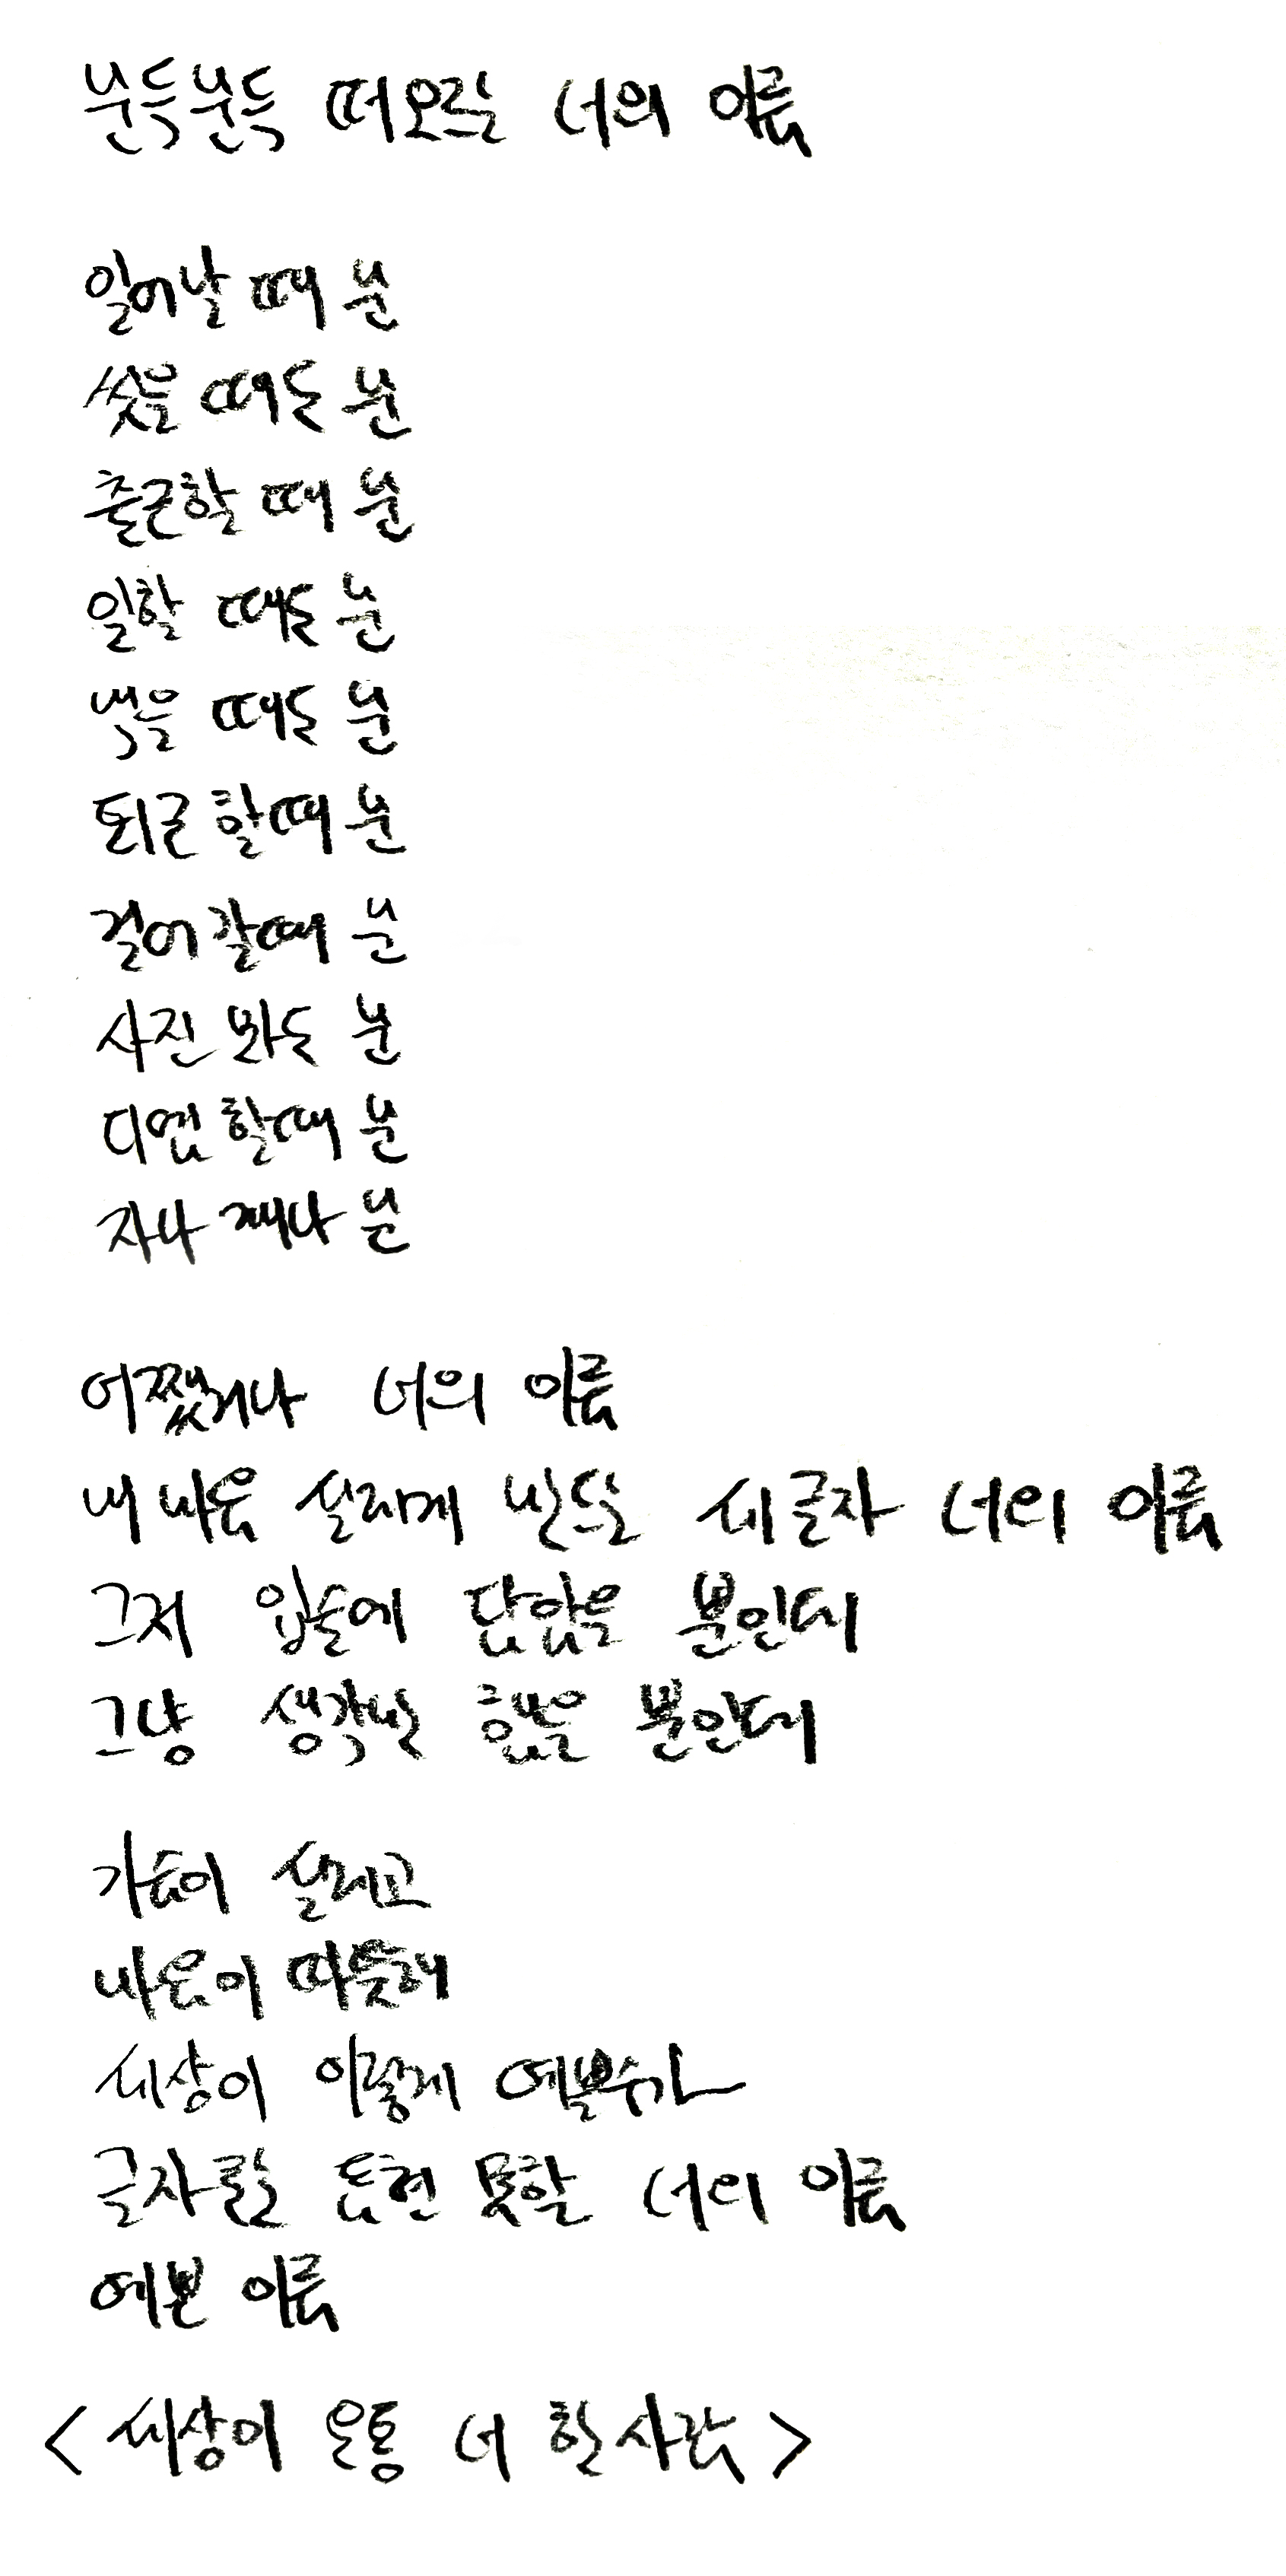 문득문득 떠오르는 너의 이름
일어날 때 문
씻을 때도 문
출근할 때 문
일할 때도 문
먹을 때도 문
퇴근 할때 문
걸어 갈때 문
사진 봐도 문
디엠 할때 문
자나 깨나 문
어쨌거나 너의 이름
내 마음 설레게 만드는 세 글자 너의 이름
그저 입술에 담았을 뿐인데
그냥 생각만 했을 뿐인데
가슴이 설레고
마음이 따뜻해
세상이 이렇게 예쁠수가
글자로는 표현 못할 너의 이름
예쁜 이름
< 세상이 온통 너 한 사람 >